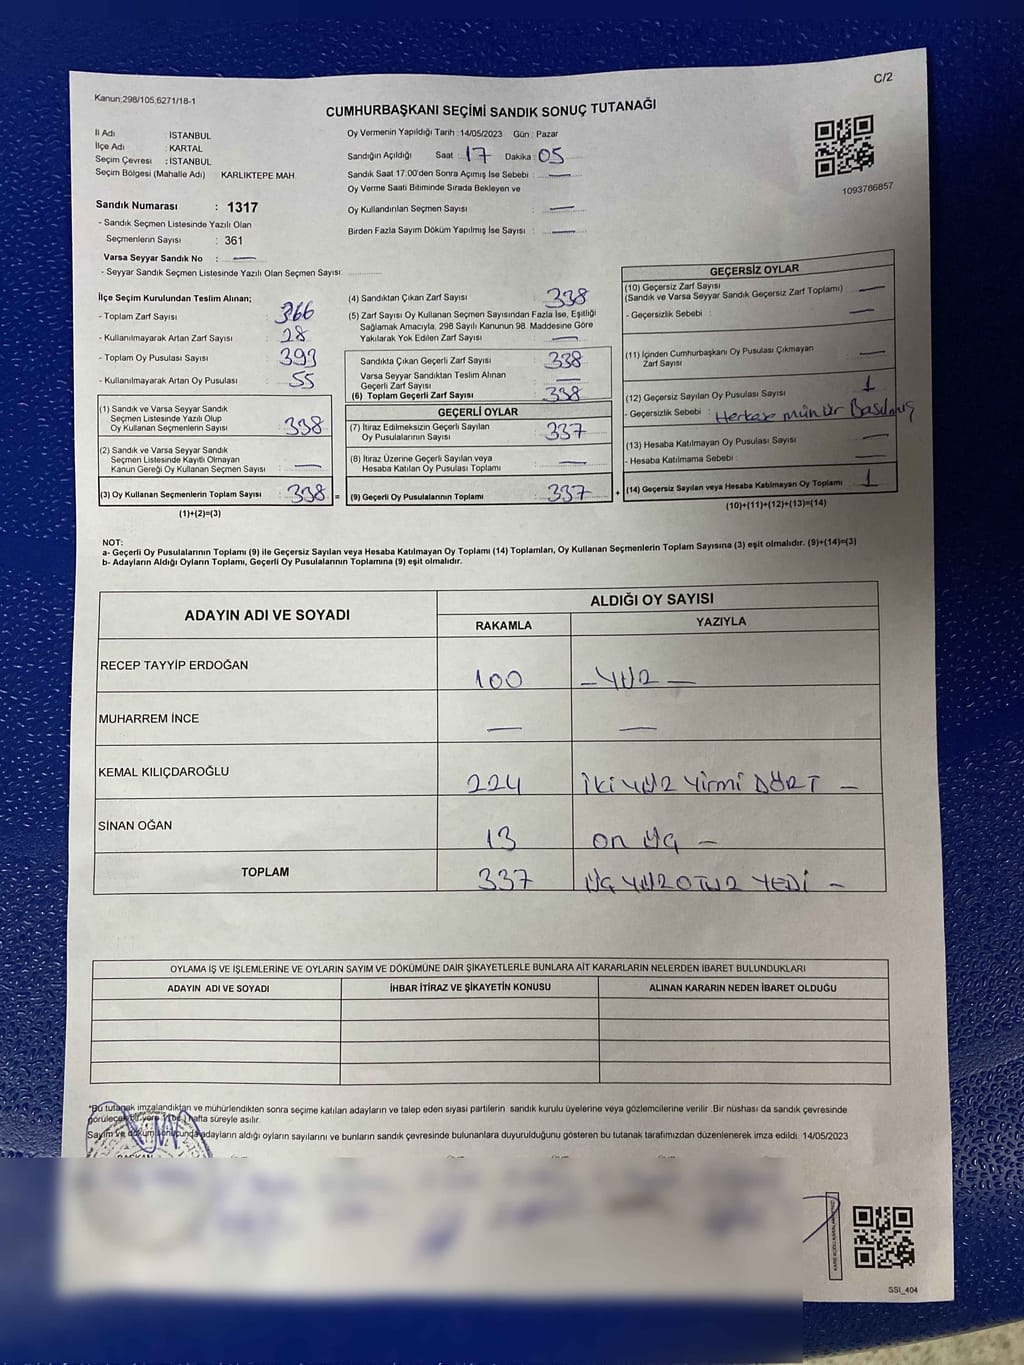 C/2
Kanun;298/105,6271/18-1
CUMHURBAŞKANI SEÇİMİ SANDIK SONUÇ TUTANAĞI
İl Adı : İSTANBUL
İlçe Adı : KARTAL
Seçim Çevresi : İSTANBUL
Seçim Bölgesi (Mahalle Adı) KARLIKTEPE MAH
Sandık Numarası : 1317
- Sandık Seçmen Listesinde Yazılı Olan
Seçmenlerin Sayısı : 361
Varsa Seyyar Sandık No : —
- Seyyar Sandık Seçmen Listesinde Yazılı Olan Seçmen Sayısı
Oy Vermenin Yapıldığı Tarih : 14/05/2023 Gün : Pazar
Sandığın Açıldığı Saat : 17 Dakika : 05
Sandık Saat 17.00'den Sonra Açımış İse Sebebi : —
Oy Verme Saati Bitiminde Sırada Bekleyen ve
Oy Kullandırılan Seçmen Sayısı : —
Birden Fazla Sayım Döküm Yapılmış İse Sayısı : —
1093786857
İlçe Seçim Kurulundan Teslim Alınan;
- Toplam Zarf Sayısı : 366
- Kullanılmayarak Artan Zarf Sayısı : 28
- Toplam Oy Pusulası Sayısı : 393
- Kullanılmayarak Artan Oy Pusulası : 55
(1) Sandık ve Varsa Seyyar Sandık
Seçmen Listesinde Yazılı Olup
Oy Kullanan Seçmenlerin Sayısı : 338
(2) Sandık ve Varsa Seyyar Sandık
Seçmen Listesinde Kayıtlı Olmayan
Kanun Gereği Oy Kullanan Seçmen Sayısı : —
(3) Oy Kullanan Seçmenlerin Toplam Sayısı : 338 =
(1)+(2)=(3)
(4) Sandıktan Çıkan Zarf Sayısı : 338
(5) Zarf Sayısı Oy Kullanan Seçmen Sayısından Fazla İse, Eşitliği
Sağlamak Amacıyla, 298 Sayılı Kanunun 98. Maddesine Göre
Yakılarak Yok Edilen Zarf Sayısı : —
Sandıkta Çıkan Geçerli Zarf Sayısı : 338
Varsa Seyyar Sandıktan Teslim Alınan
Geçerli Zarf Sayısı : —
(6) Toplam Geçerli Zarf Sayısı : 338
GEÇERLİ OYLAR
(7) İtiraz Edilmeksizin Geçerli Sayılan
Oy Pusulalarının Sayısı : 337
(8) İtiraz Üzerine Geçerli Sayılan veya
Hesaba Katılan Oy Pusulası Toplamı : —
(9) Geçerli Oy Pusulalarının Toplamı : 337 +
GEÇERSİZ OYLAR
(10) Geçersiz Zarf Sayısı
(Sandık ve Varsa Seyyar Sandık Geçersiz Zarf Toplamı) : —
- Geçersizlik Sebebi : —
(11) İçinden Cumhurbaşkanı Oy Pusulası Çıkmayan
Zarf Sayısı : —
(12) Geçersiz Sayılan Oy Pusulası Sayısı : 1
- Geçersizlik Sebebi : Herkese mühür Basılmış
(13) Hesaba Katılmayan Oy Pusulası Sayısı : —
- Hesaba Katılmama Sebebi : —
(14) Geçersiz Sayılan veya Hesaba Katılmayan Oy Toplamı : 1
(10)+(11)+(12)+(13)=(14)
NOT:
a- Geçerli Oy Pusulalarının Toplamı (9) ile Geçersiz Sayılan veya Hesaba Katılmayan Oy Toplamı (14) Toplamları, Oy Kullanan Seçmenlerin Toplam Sayısına (3) eşit olmalıdır. (9)+(14)=(3)
b- Adayların Aldığı Oyların Toplamı, Geçerli Oy Pusulalarının Toplamına (9) eşit olmalıdır.
ADAYIN ADI VE SOYADI ALDIĞI OY SAYISI
RAKAMLA YAZIYLA
RECEP TAYYİP ERDOĞAN 100 —YÜZ—
MUHARREM İNCE — —
KEMAL KILIÇDAROĞLU 224 İki YÜZ Yirmi DÖRT —
SİNAN OĞAN 13 on üç —
TOPLAM 337 üç YÜZ OTUZ YEDİ —
OYLAMA İŞ VE İŞLEMLERİNE VE OYLARIN SAYIM VE DÖKÜMÜNE DAİR ŞİKAYETLERLE BUNLARA AİT KARARLARIN NELERDEN İBARET BULUNDUKLARI
ADAYIN ADI VE SOYADI İHBAR İTİRAZ VE ŞİKAYETİN KONUSU ALINAN KARARIN NEDEN İBARET OLDUĞU
*Bu tutanak imzalandıktan ve mühürlendikten sonra seçime katılan adayların ve talep eden siyasi partilerin sandık kurulu üyelerine veya gözlemcilerine verilir. Bir nüshası da sandık çevresinde
görülecek bir yere 1(bir) hafta süreyle asılır.
Sayım ve döküm sonucunda adayların aldığı oyların sayılarını ve bunların sandık çevresinde bulunanlara duyurulduğunu gösteren bu tutanak tarafımızdan düzenlenerek imza edildi. 14/05/2023
BAŞKAN
SSİ_404